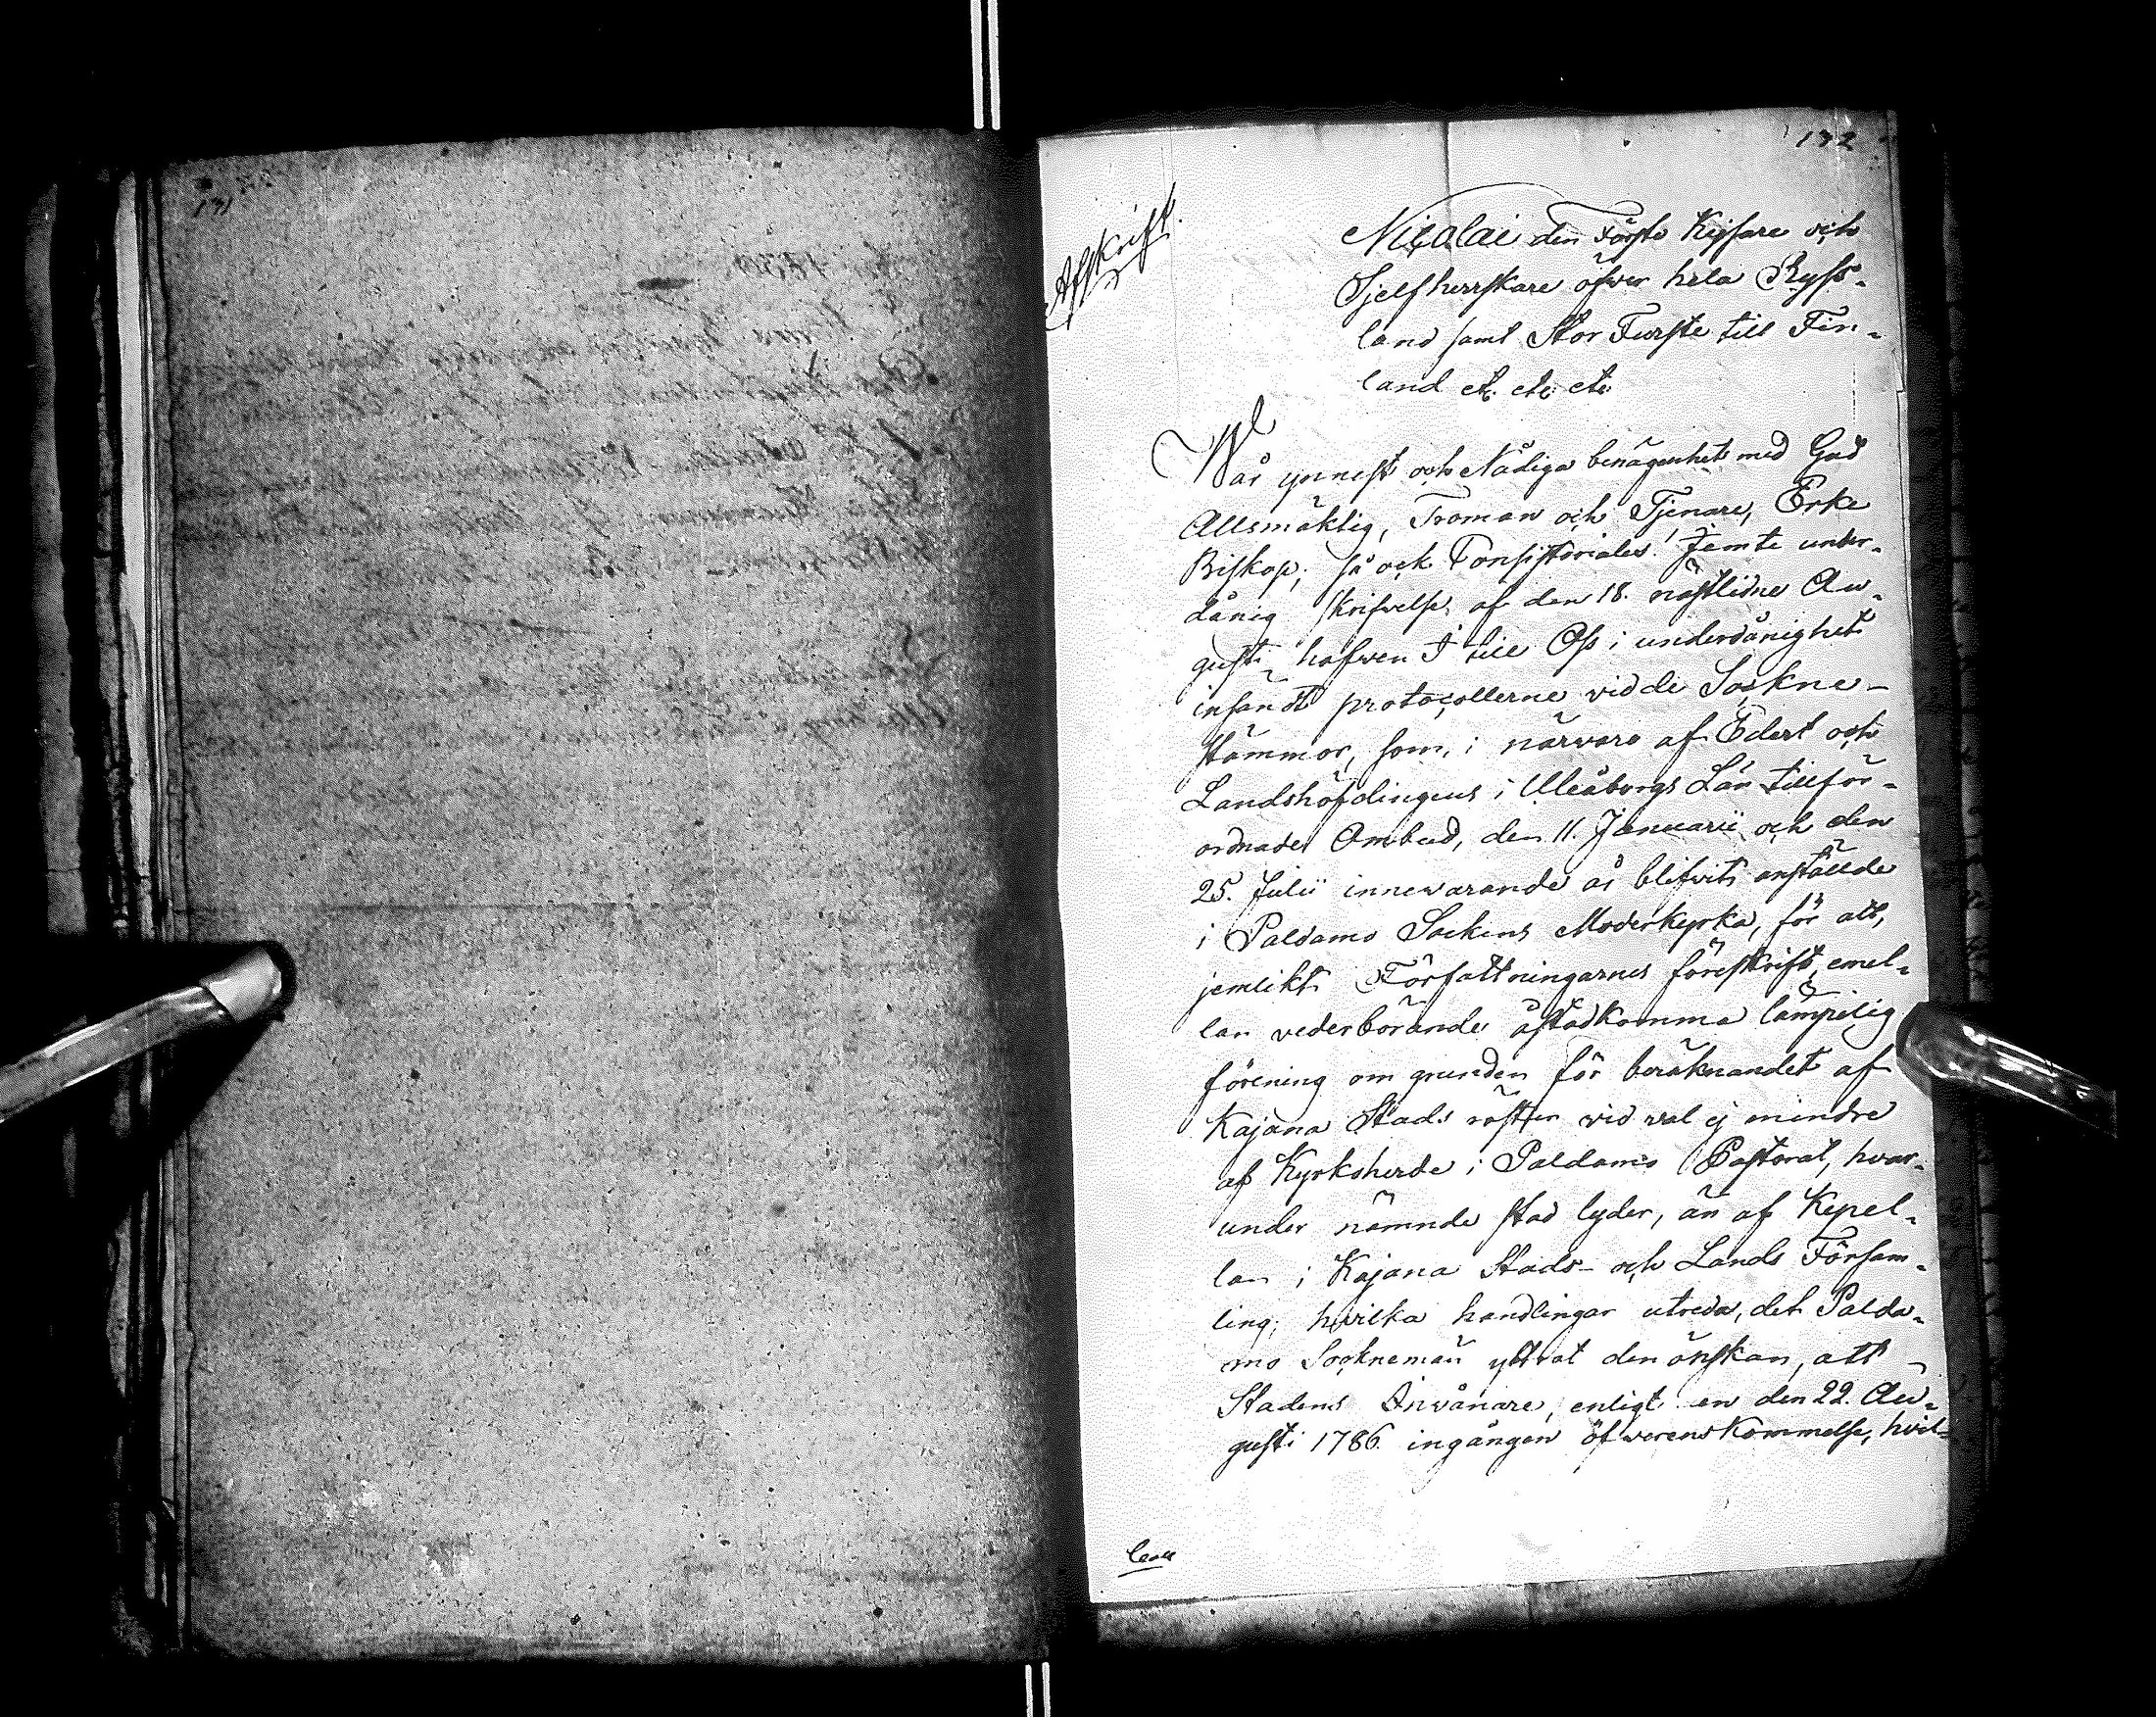 131
132
Afskrift.
Nicolai den Förste Kejsare och
Sjelfherrskare öfwer hela Ryss-
land samt Stor Furste till Fin-
land etc. etc. etc.
Wår ynnest och Nådiga benägenhet med Gud
Allsmäktig, Troman och Tjenare, Erke
Biskop, så ock Consistoriales! Jemte under-
dånig skrifvelse af den 18. nästlidne Au-
gusti hafwen I till Oss i underdånighet
insändt protocollerne vid de Sockne-
stämmor, som, i närvaro af Edert och
Landshöfdingens i Uleåborgs Län tillför-
ordnade Ombud, den 11. Januarii och den
25. Julii innewarande år blifvit anställde
i Paldamo Sockens Moderkyrka, för att,
jemlikt Författningarnes föreskrift, emel-
lan vederbörande åstadkomma lämpelig
förening om grunden för beräknandet af
Kajana Stads röster vid val ej mindre
af Kyrkoherde i Paldamo Pastorat, hvar-
under nämnde stad lyder, än af Kapel-
lan i Kajana Stads- och Lands Försam-
ling; hvilka handlingar utreda, det Palda-
mo Sockneman yttrat den önskan, att
Stadens Invånare, enligt en den 22. Au-
gusti 1786. ingången öfwerenskommelse, hvil-